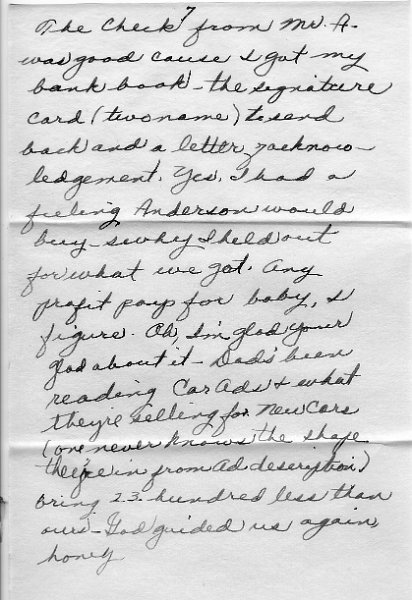 7
The Check from Mr. A.
was good cause I got my
bank book - the signature
card (two name) to send
back and a letter, acknow-
ledgement. Yes, I had a
feeling Anderson would
buy - so why I held out
for what we got. Any
profit pays for baby, I
figure. Oh, I'm glad your
glad about it - Dad's been
reading Car Ads & what
they're selling for New Cars
(one never knows the shape
they're in from ad description)
bring 2-3 hundred less than
ours - God guided us again,
honey